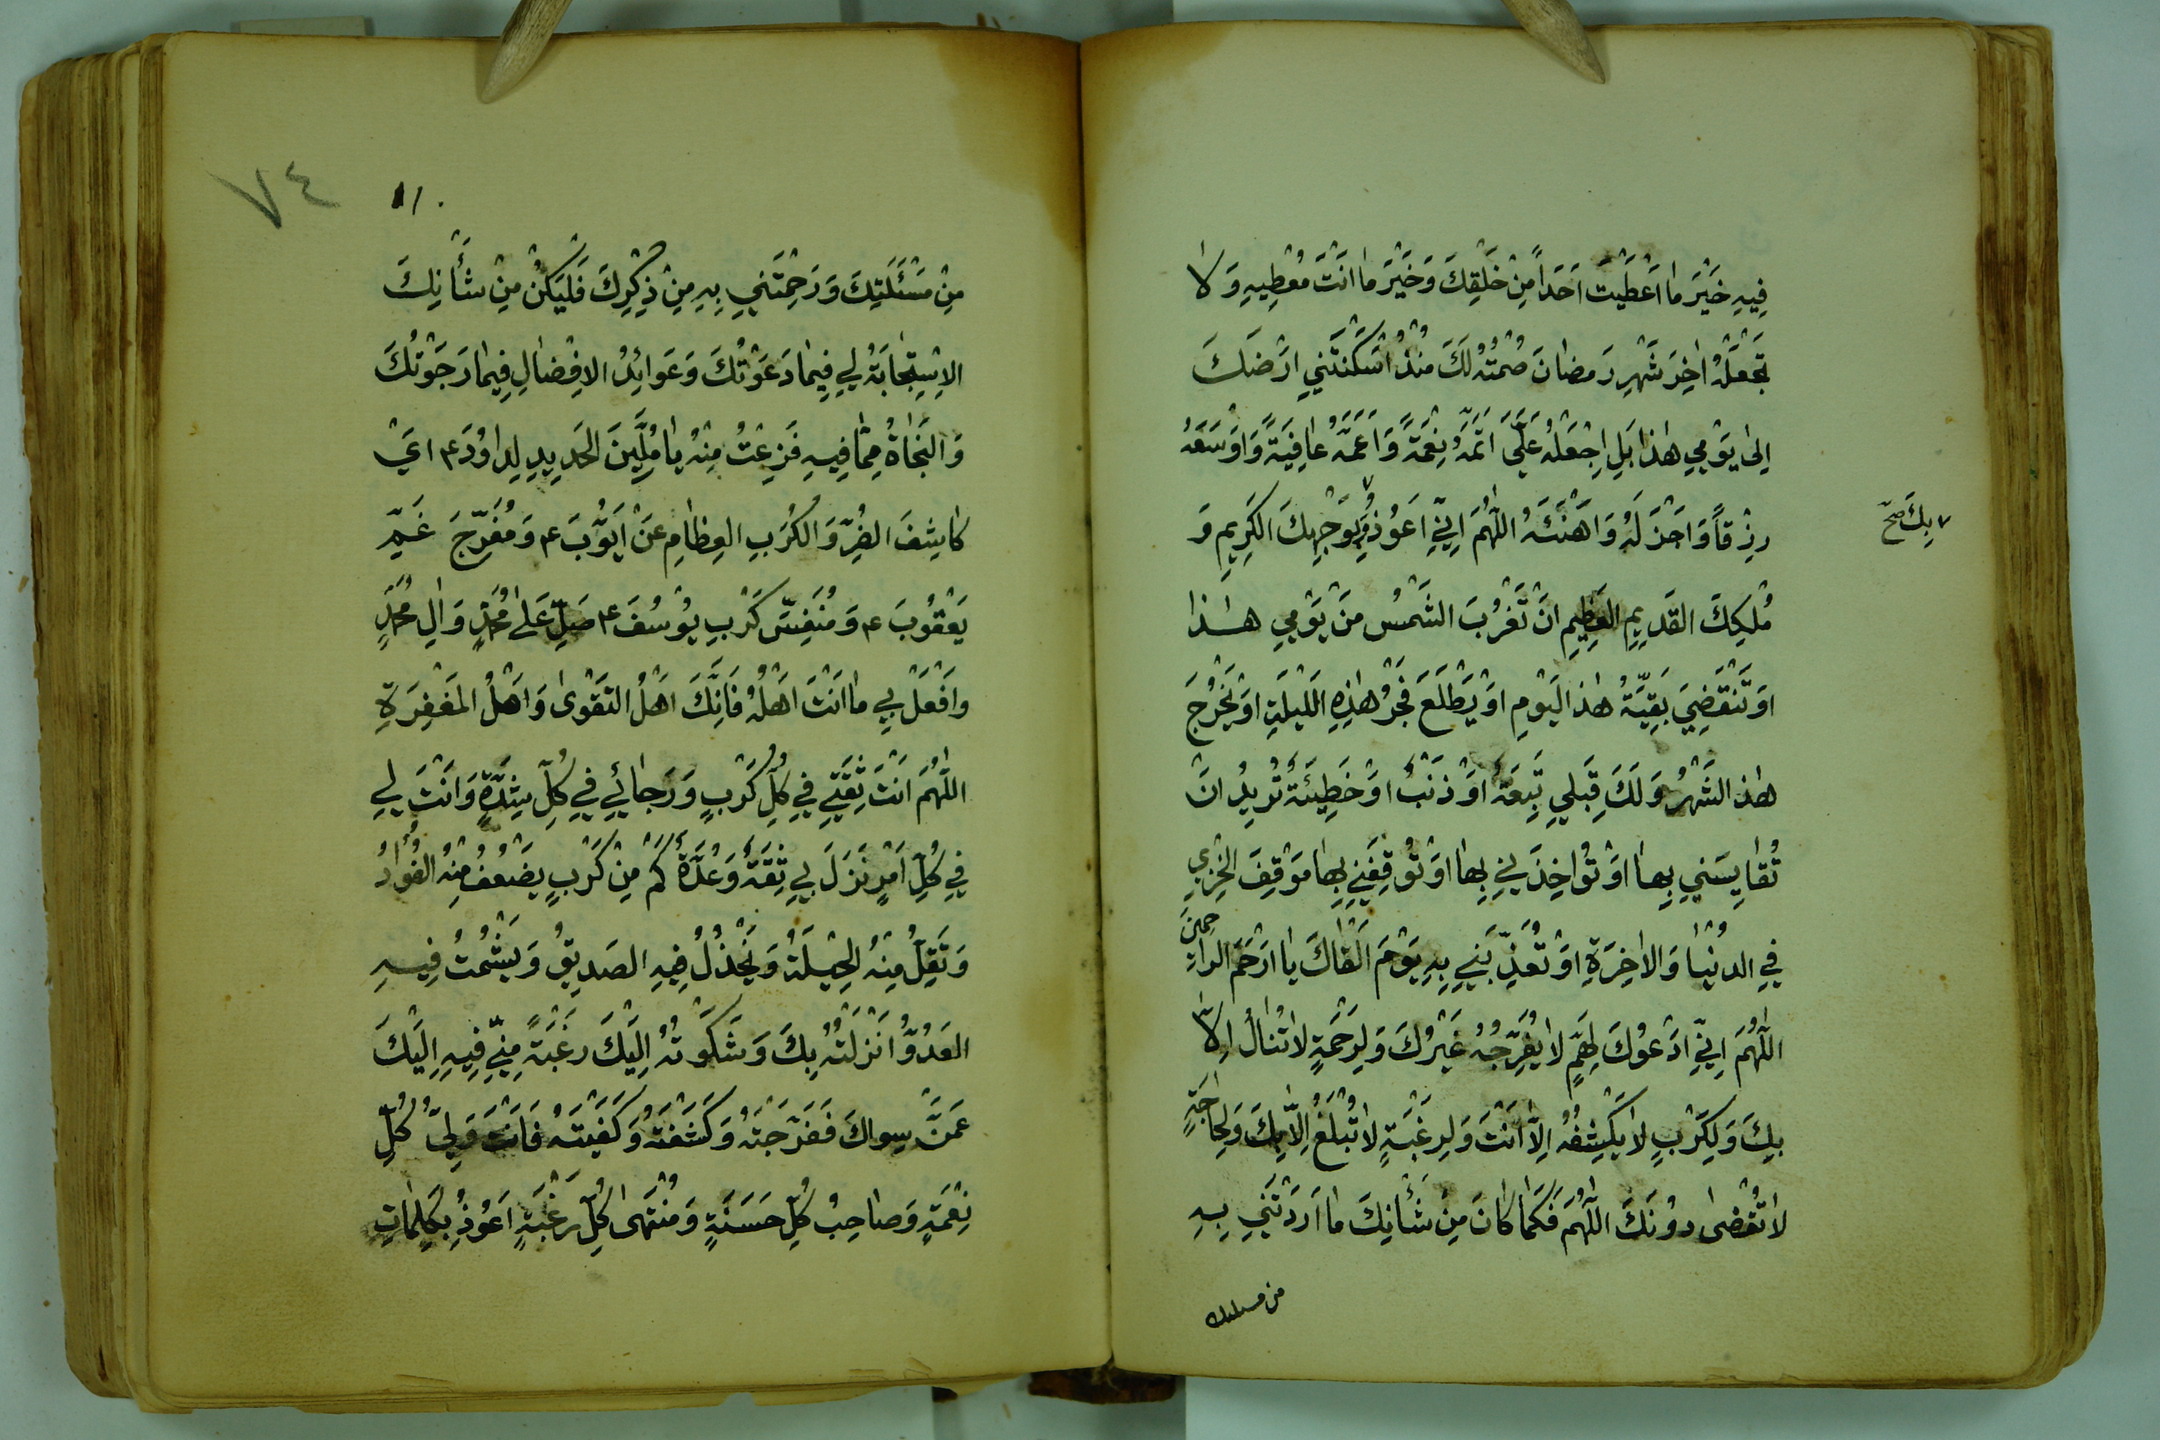 فِيهِ خَيْرَ مٰا اَعْطَيْتَ اَحَدَاً مِنْ خَلْقِكَ وَخَيْرَ مٰا اَنْتَ مُعْطِيهِ وَلاٰ
تَجْعَلْهُ اٰخِرَ شَهْرِ رَمضٰانَ صُمْتُهُ لَكَ مُنْذُ اَسْكَنْتَنِي اَرْضَكَ
اِلىٰ يَوْمِي هٰذا بَلِ اجْعَلْهُ عَلَىَّ اَتَمَّهُ نِعْمَةً وَاَعَمَّهُ عٰافِيَةً وَاَوْسَعَهُ
رِزْقاً وَاَجْزَلَهُ وَاَهْنَئَهُ اللّٰهُمَ اِنِّي اَعُوذُ وَبِوَجْهِكَ الكَرِيمِ وَ
٧ بِكَ صح
مُلْكِكَ القَدِيمِ العَظِيمِ اَنْ تَغْرُبَ الشَمْسُ مَنْ يَوْمِي هٰـذا
اَوْ تَنْقَضِيَ بَقِيَّةُ هٰذا اليَوْمِ اَوْ يَطْلَعَ فَجْرُ هٰذِهِ اللَيْلَةِ اَوْ يَخْرُجَ
هٰذا الشَّهْرُ وَلَكَ قِبَلِي تَبِعَةٌ اَوْ ذَنْبٌ اَوْ خَطِيئَةٌ تُرِيدُ اَنْ
تُقٰايِسَنِي بِهٰا اَوْ تُؤاخِذَنِي بِهٰا اَوْ تُوْقِفَنِي بِهٰا مَوْقِفَ الخِزْيِ
فِي الدُنْيٰا وَالاٰخِرَةِ اَوْ تُعَذِّبَنِي بِهِ يَوْمَ اَلْقٰاكَ يٰا اَرْحَمَ الرٰاحِمِينَ
اللّٰهُمَ اِنِّي اَدْعُوكَ لِهَمٍّ لاٰ يُفَرِّجُهُ غَيْرُكَ وَلِرَحْمَةٍ لاٰ تُنٰالُ اِلاّٰ
بِكَ وَلِكَرْبٍ لاٰ يَكْشِفُهُ اِلاّٰ اَنْتَ وَلِرَغْبَةٍ لاٰ تُبْلَغُ اِلاّٰ بِكَ وَلِحٰاجَةٍ
لاٰ تُقْضىٰ دُونَكَ اللّٰهُمَ فَكَمٰا كٰانَ مِنْ شَأْنِكَ مٰا اَرَدْتَنِي بِهِ
من مسئلتك
٧٤
مِنْ مَسْئَلَتِكَ وَرَحِمْتَنِي بِهِ مِنْ ذِكْرِكَ فَلْيَكُنْ مِنْ شَأْنِكَ
الاِسْتِجٰابَةُ لِي فِيمٰا دَعَوْتُكَ وَعَوائِدُ الاِفْضٰالِ فِيمٰا رَجَوْتُكَ
وَالنَجٰاةُ مِمّٰا فِيهِ فَزِعْتُ مِنْهُ يٰا مُلَيِّنَ الحَدِيدِ لِداوُدَ ع اَيْ
كٰاشِفَ الضُرِّ وَالكُرَبِ العِظٰامِ عَنْ اَيّوُبَ ع وَمُفَرِّجَ غَمِّ
يَعْقُوبَ ع وَمُنَفِّسَ كَرْبِ يُوْسُفَ ع صَلِّ عَلىٰ مُحَمَّدٍ وَاٰلِ مُحَمَّدٍ
وَافْعَلْ بِي مٰا اَنْتَ اَهْلُهُ فَاِنَّكَ اَهْلُ التَقْوىٰ وَاَهْلُ المَغْفِرَةِ
اللّٰهُمَ اَنْتَ ثِقَتِي فِي كُلِّ كَرْبٍ وَرَجٰائِي فِي كُلِّ شِدَّةٍ وَاَنْتَ لِي
فِي كُلِّ اَمْرٍ نَزَلَ بِي ثِقَةٌ وَعُدَّةٌ كَمْ مِنْ كَرْبٍ يَضْعُفُ مِنْهُ الفُؤادُ
وَتَقِلُّ مِنْهُ الحِيْلَةُ وَيَخْذُلُ فِيهِ الصَدِيقُ وَيَشْمُتُ فِيـهِ
العَدُوُّ اَنْزَلْتُهُ بِكَ وَشَكَوْتُهُ اِلَيْكَ رَغْبَةً مِنِّي فِيهِ اِلَيْكَ
عَمَّنْ سِواكَ فَفَرَّجْتَهُ وَكَشَفْتَهُ وَكَفَيْتَهُ فَاَنْتَ وَلِيُّ كُلِّ
نِعْمَةٍ وَصٰاحِبُ كُلِّ حَسَنَةٍ وَمُنْتَهىٰ كُلِّ رَغْبَةٍ اَعُوْذُ بِكَلِمٰاتِ